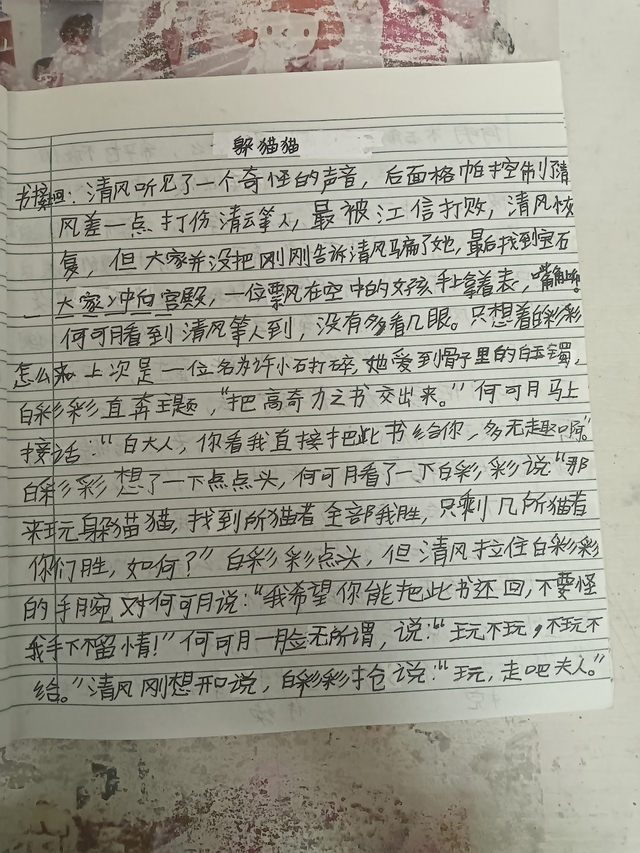 躲猫猫
书接上回：清风听见了一个奇怪的声音，后面格帕控制了清
风差一点打伤清云等人，最被江信打败，清风恢
复，但大家并没把刚刚告诉清风马痛了她，最后找到宝石
大家冲向宫殿，一位票风在空中的女孩手上拿着表，嘴角
何可月看到清风等人到，没有多看几眼。只想着白彩彩
怎么来 上次是一位名为许小石打碎，她爱到骨子里的白玉镯，
白彩彩直奔主题，“把高奇力之书交出来。”何可月马上
接话：“白大人，你看我直接把此书给你，多无趣啊。”
白彩彩想了一下点点头，何可月看了一下白彩彩说“那
来玩躲猫猫，找到所猫者全部我胜，只剩几所猫者
你们胜，如何？”白彩彩点头，但清风拉住白彩彩
的手腕对何可月说：“我希望你能把此书还回，不要怪
我手下不留情！”何可月一脸无所谓，说：“玩不玩，不玩不
给。”清风刚想开口说，白彩彩抢说：“玩，走吧夫人。”